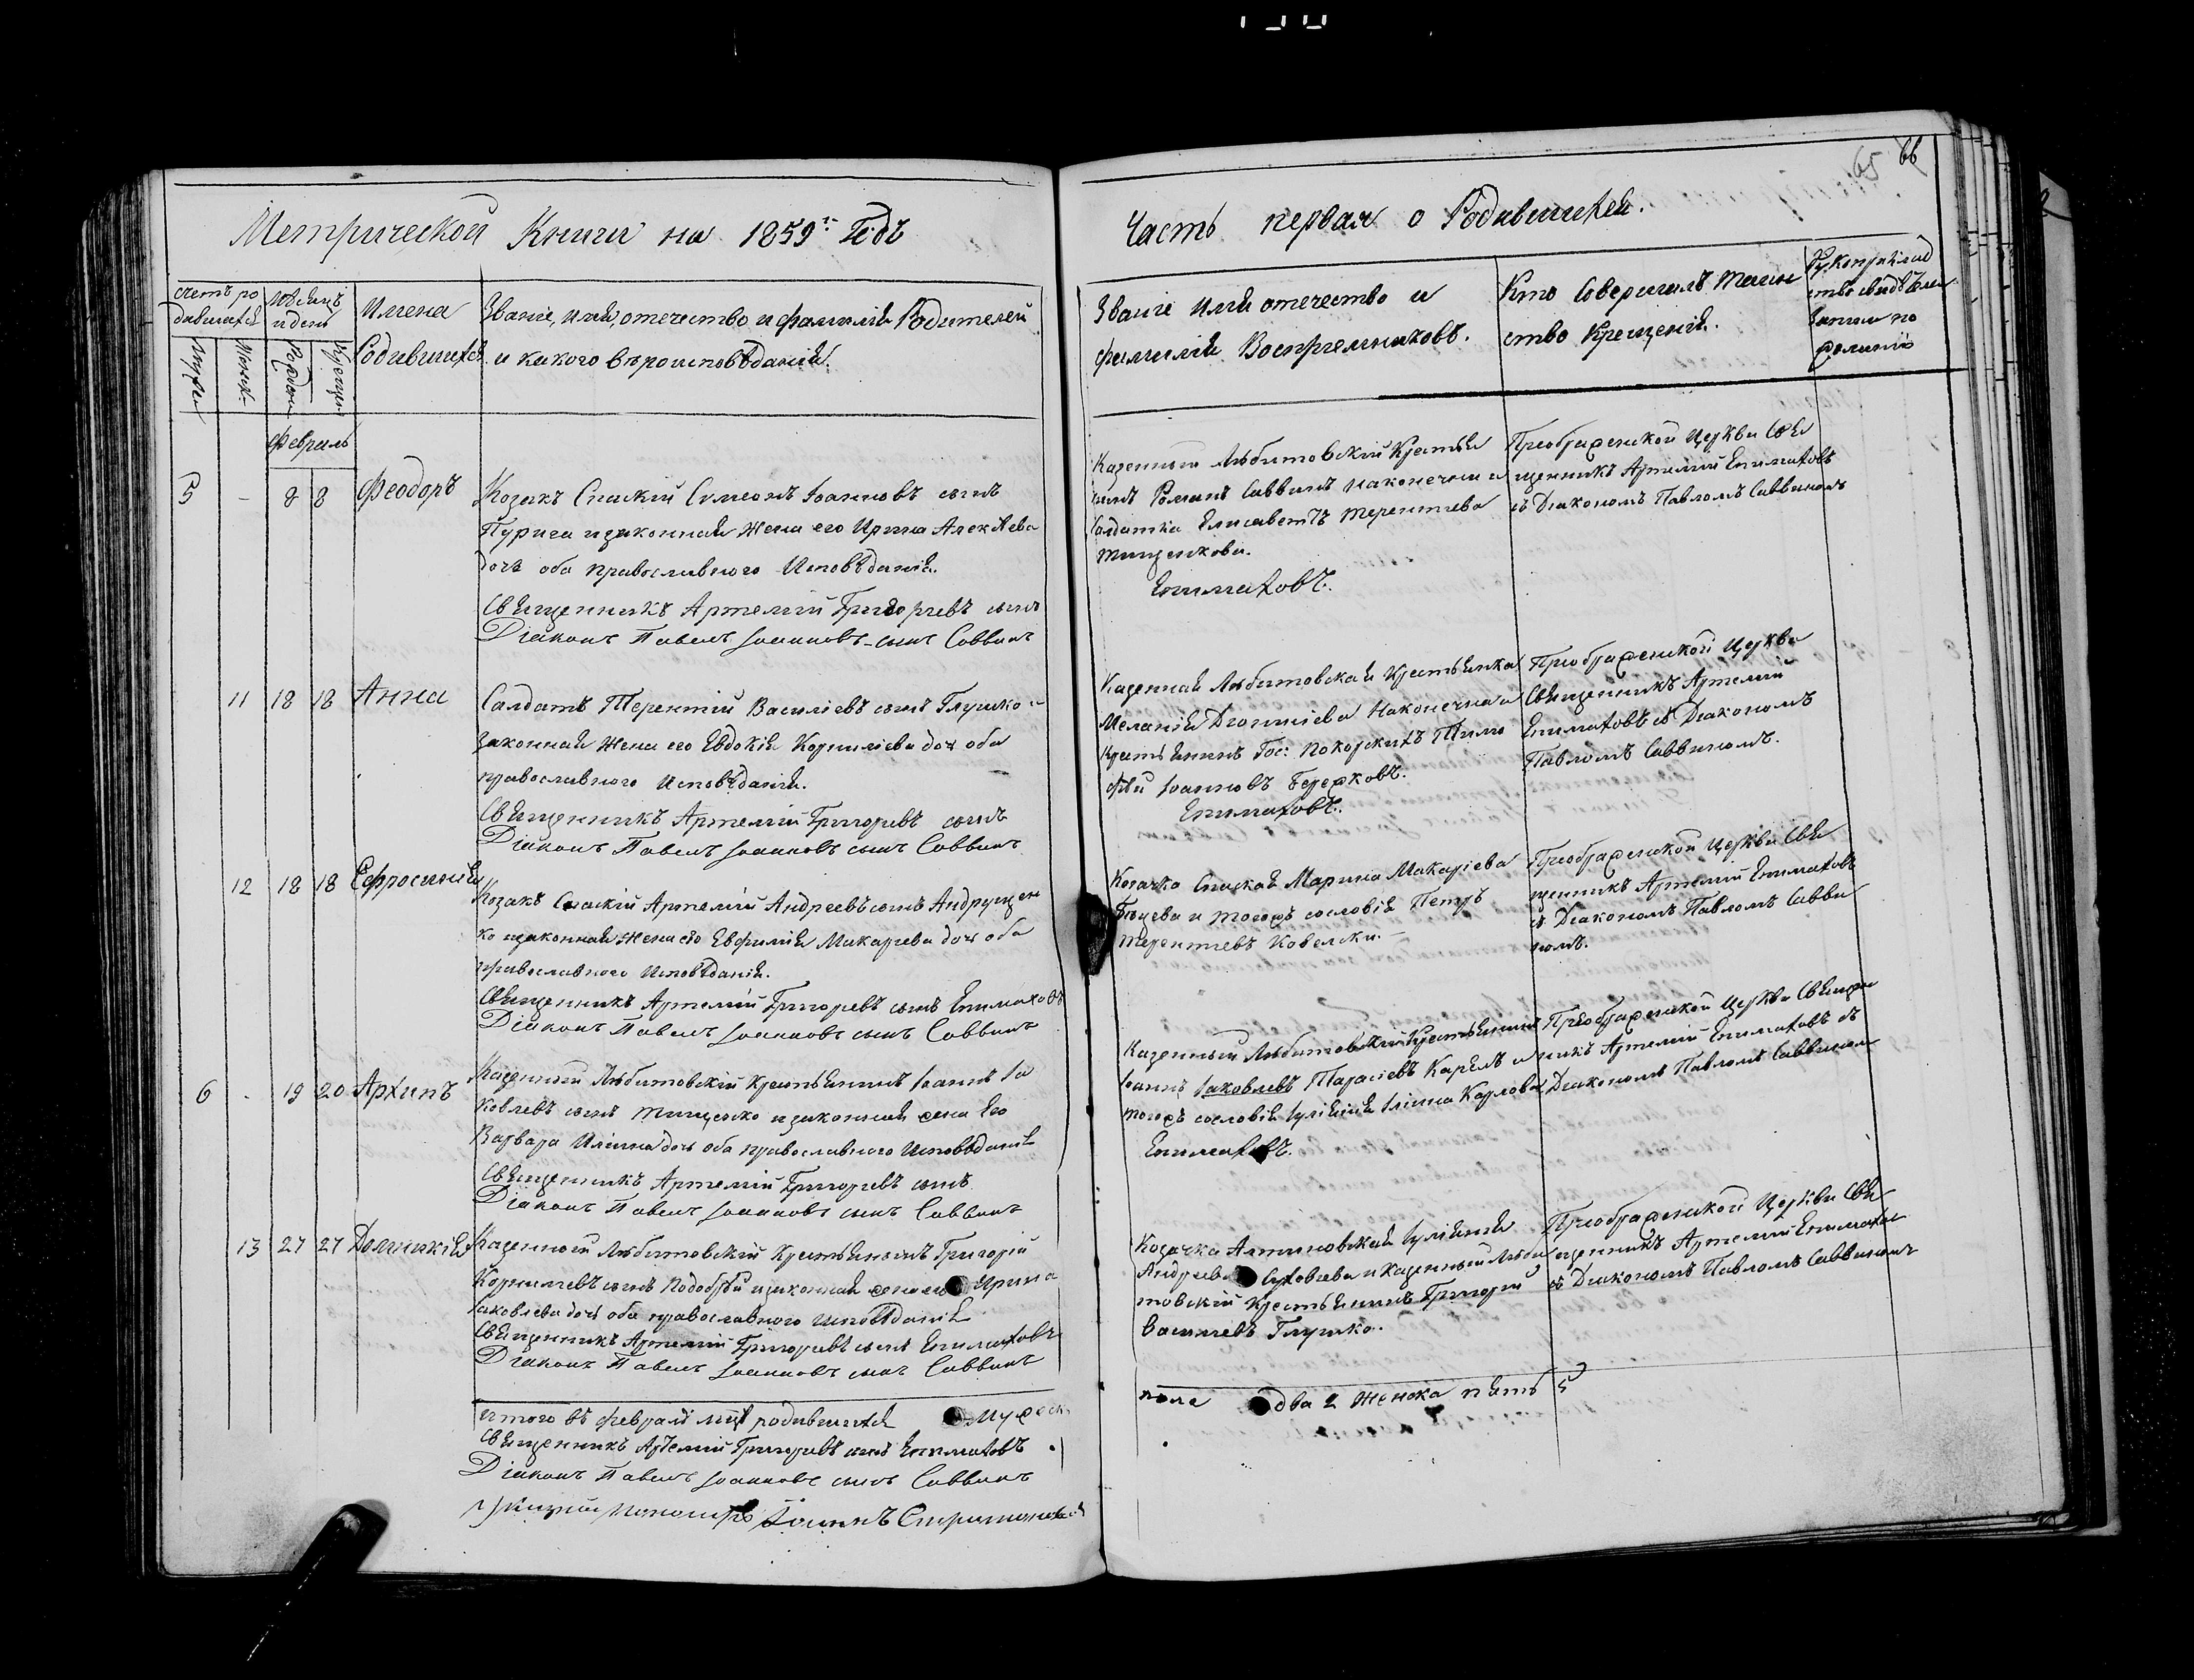 65 66
Метрической Книги на 1859й Годъ
Часть первая о Родившихся.
Счетъ родившихся
Мѣсяцъ и день
Имена Родившихся
Званіе, имя, отечество и фамилія Родителей
и какого вѣроисповѣданія.
Званіе Имя отечество и
фамилія Воспріемниковъ.
Кто Совершалъ Таин
ство Крещенія.
Рукоприклад
ство свидѣтелей
записи по
желанію
Февраль
5 - 8 8 Феодоръ
Козакъ Спаскій Симеонъ Іоанновъ сынъ
Пурига и законная Жена его Ирина Алексѣева
дочь оба православного Исповѣданія.
Священникъ Артемій Григорьевъ сынъ
Діаконъ Павелъ Іоанновъ сынъ Саввинъ
Казенный Любитовскій Крестья
нинъ Романъ Саввинъ Наконечный и
Салдатка Елисаветъ Терентіева
Тищенкова.
Епимаховъ.
Преображенской Церкви Свя
щенникъ Артемій Епимаховъ
съ Діакономъ Павломъ Саввиномъ
11 18 18 Анна
Салдатъ Терентій Василіевъ сынъ Глушко и
законная Жена его Евдокія Корниліева дочь оба
православного Исповѣданія.
Священникъ Артемій Григорьевъ сынъ
Діаконъ Павелъ Іоанновъ сынъ Саввинъ
Казенная Любитовская Крестьянка
Меланія Діонисіева Наконечная и
Крестьянинъ Гос: Покорскихъ Тимо
фей Іоанновъ Бережковъ.
Епимаховъ.
Преображенской Церкви
Священникъ Артемій
Епимаховъ съ Діакономъ
Павломъ Саввиномъ.
12 18 18 Ефросинія
Козакъ Спаскій Артемій Андреевъ сынъ Андрущен
ко и законная Жена его Евфимія Макарьева дочь оба
православного Исповѣданія.
Священникъ Артемій Григорьевъ сынъ Епимаховъ
Діаконъ Павелъ Іоанновъ сынъ Саввинъ
Козачка Спаская Марина Макаріева
и тогожъ сословія Петръ
Терентіевъ
Преображенской Церкви Свя
щенникъ Артемій Епимаховъ
съ Діакономъ Павломъ Савви
номъ.
6 - 19 20 Архипъ
Казенный Любитовскій Крестьянинъ Іоаннъ Іа
ковлевъ сынъ Тищенко и законная жена Его
Варвара Иліина дочь оба православного Исповѣданія
Священникъ Артемій Григорьевъ сынъ
Діаконъ Павелъ Іоанновъ сынъ Саввинъ
Казенный Любитовскій Крестьянинъ
Іоаннъ Іаковлевъ Тарасіевъ Карпъ и
тогожъ сословія Іуліанія Іліина Карпова
Епимаховъ.
Преображенской Церкви Священ
никъ Артемій Епимаховъ съ
Діакономъ Павломъ Саввиномъ
13 27 27 Домникія
Казенный Любитовскій Крестьянинъ Григорій
Корнилievъ сынъ Подобрѣй и законная жена его Ирина
Іаковлева дочь оба православного Исповѣданія
Священникъ Артемій Григорьевъ сынъ Епимаховъ
Діаконъ Павелъ Іоанновъ сынъ Саввинъ
Козачка Іуліанія
Андреева и Казенный Люби
товскій Крестьянинъ Григорій
Василіевъ Глушко.
Преображенской Церкви Свя
щенникъ Артемій Епимахов
съ Діакономъ Павломъ Саввиномъ
Итого въ Февралѣ мцѣ родившихся Мужеск
поля два 2 Женска пять 5
Священникъ Артемій Григорьевъ сынъ Епимаховъ
Діаконъ Павелъ Іоанновъ сынъ Саввинъ
Іоаннъ